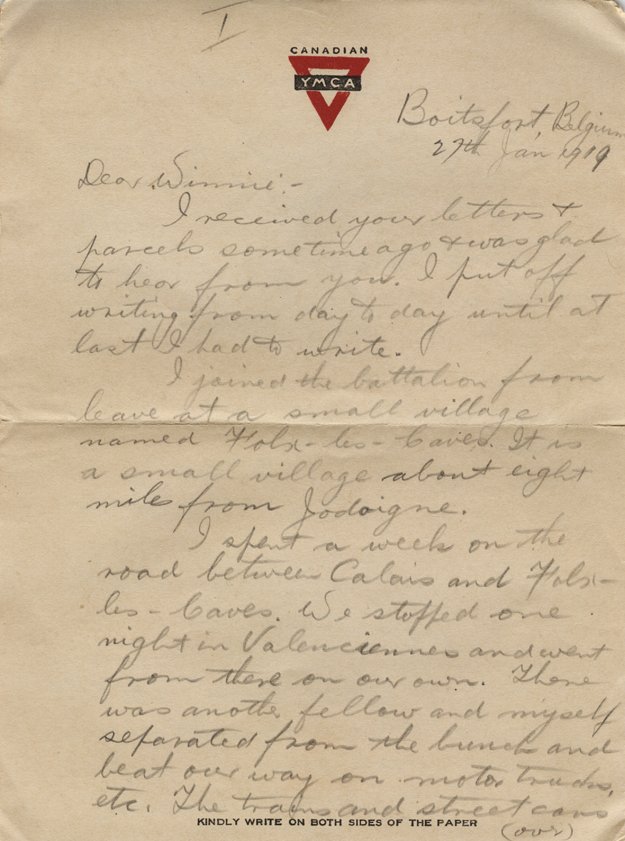 I
CANADIAN
YMCA
Boitsfort, Belgium
27th Jan 1919
Dear Winnie:-
I received your letters &
parcels sometime ago & was glad
to hear from you. I put off
writing from day to day until at
last I had to write.
I joined the battalion from
leave at a small village
named Folx-les-Caves. It is
a small village about eight
miles from Jodoigne.
I spent a week on the
road between Calais and Folx-
les-Caves. We stopped one
night in Valenciennes and went
from there on our own. There
was another fellow and myself
separated from the bunch and
beat our way on motor trucks,
etc. The trains and street cars
KINDLY WRITE ON BOTH SIDES OF THE PAPER
(over)